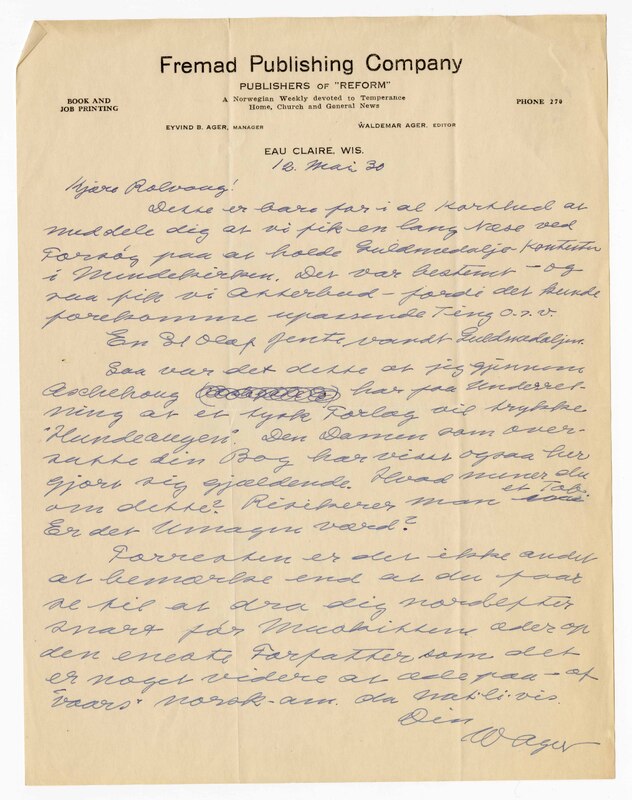 Fremad Publishing Company
PUBLISHERS OF "REFORM"
BOOK AND
JOB PRINTING
A Norwegian Weekly devoted to Temperance
Home, Church and General News
PHONE 270
EYVIND B. AGER, MANAGER
WALDEMAR AGER, EDITOR
EAU CLAIRE, WIS.
12. Mai 30
Kjære Rolvaag!
Dette er bare for i al Korthed at
meddele dig at vi fik en lang Næse ved
Forsøg paa at holde Guldmedalje Kontesten
i Mindekirken. Det var bestemt - og
saa fik vi Atterbud - fordi det kunde
forekomme upassende Ting o.s.v.
En St Olaf Jente vandt Guldmedaljen.
Saa var det dette at jeg gjennem
Aschehoug har faa Underret-
ning at et tysk Forlag vil trykke
"Hundeøine". Den Damen som over-
satte din Bog har visst ogsaa her
gjort sig gjældende. Hvad mener du
om dette? Risikerer man et Tab
Er det Umagen værd?
Forresten er det ikke andet
at bemærke end at du faar
se til at dra dig nordefter
snart før æder op
den eneste Forfatter som det
er noget videre at æde paa - af
vaare norsk-am. da natlivis
Din
W Ager